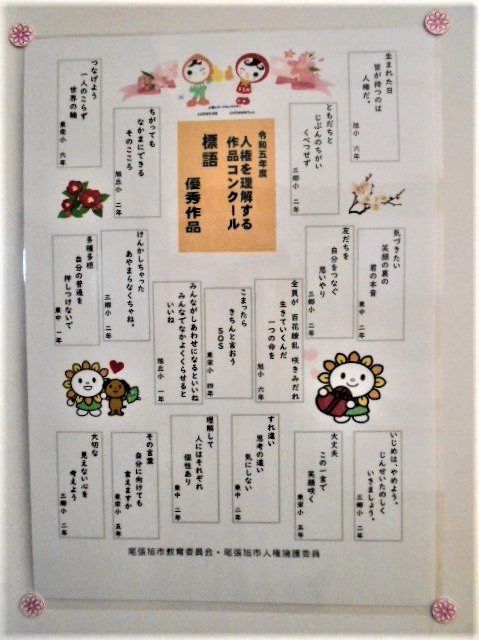 令和五年度
人権を理解する
作品コンクール
標語　優秀作品
生まれた日
皆が持つのは
人権だ。
旭小　六年
ともだちと
じぶんのちがい
くべつせず
三郷小　二年
ちがっても
なかまにできる
そのこころ
旭丘小　二年
つなげよう
一人のこらず
世界の輪
東栄小　六年
気づきたい
笑顔の裏の
君の本音
東中　二年
友だちを
自分をつなぐ
思いやり
三郷小　二年
全員が　百花繚乱　咲きみだれ
生きていくんだ
一つの命を
旭小　六年
こまったら
きちんと言おう
SOS
東栄小　四年
みんながしあわせになるといいね
みんなでなかよくくらせると
いいね
旭丘小　一年
けんかしちゃった
あやまらなくちゃね。
三郷小　二年
多種多様
自分の普通を
押しつけないで
東中　一年
いじめは、やめよう。
じんせいたのしく
いきましょう。
三郷小　二年
大丈夫
この一言で
笑顔咲く
東栄小　五年
すれ違い
思考の違い
気にしない
東中　二年
理解して
人にはそれぞれ
個性あり
東中　二年
その言葉
自分に向けても
言えますか
東栄小　五年
大切な
見えない心を
考えよう
三郷小　二年
尾張旭市教育委員会・尾張旭市人権擁護委員